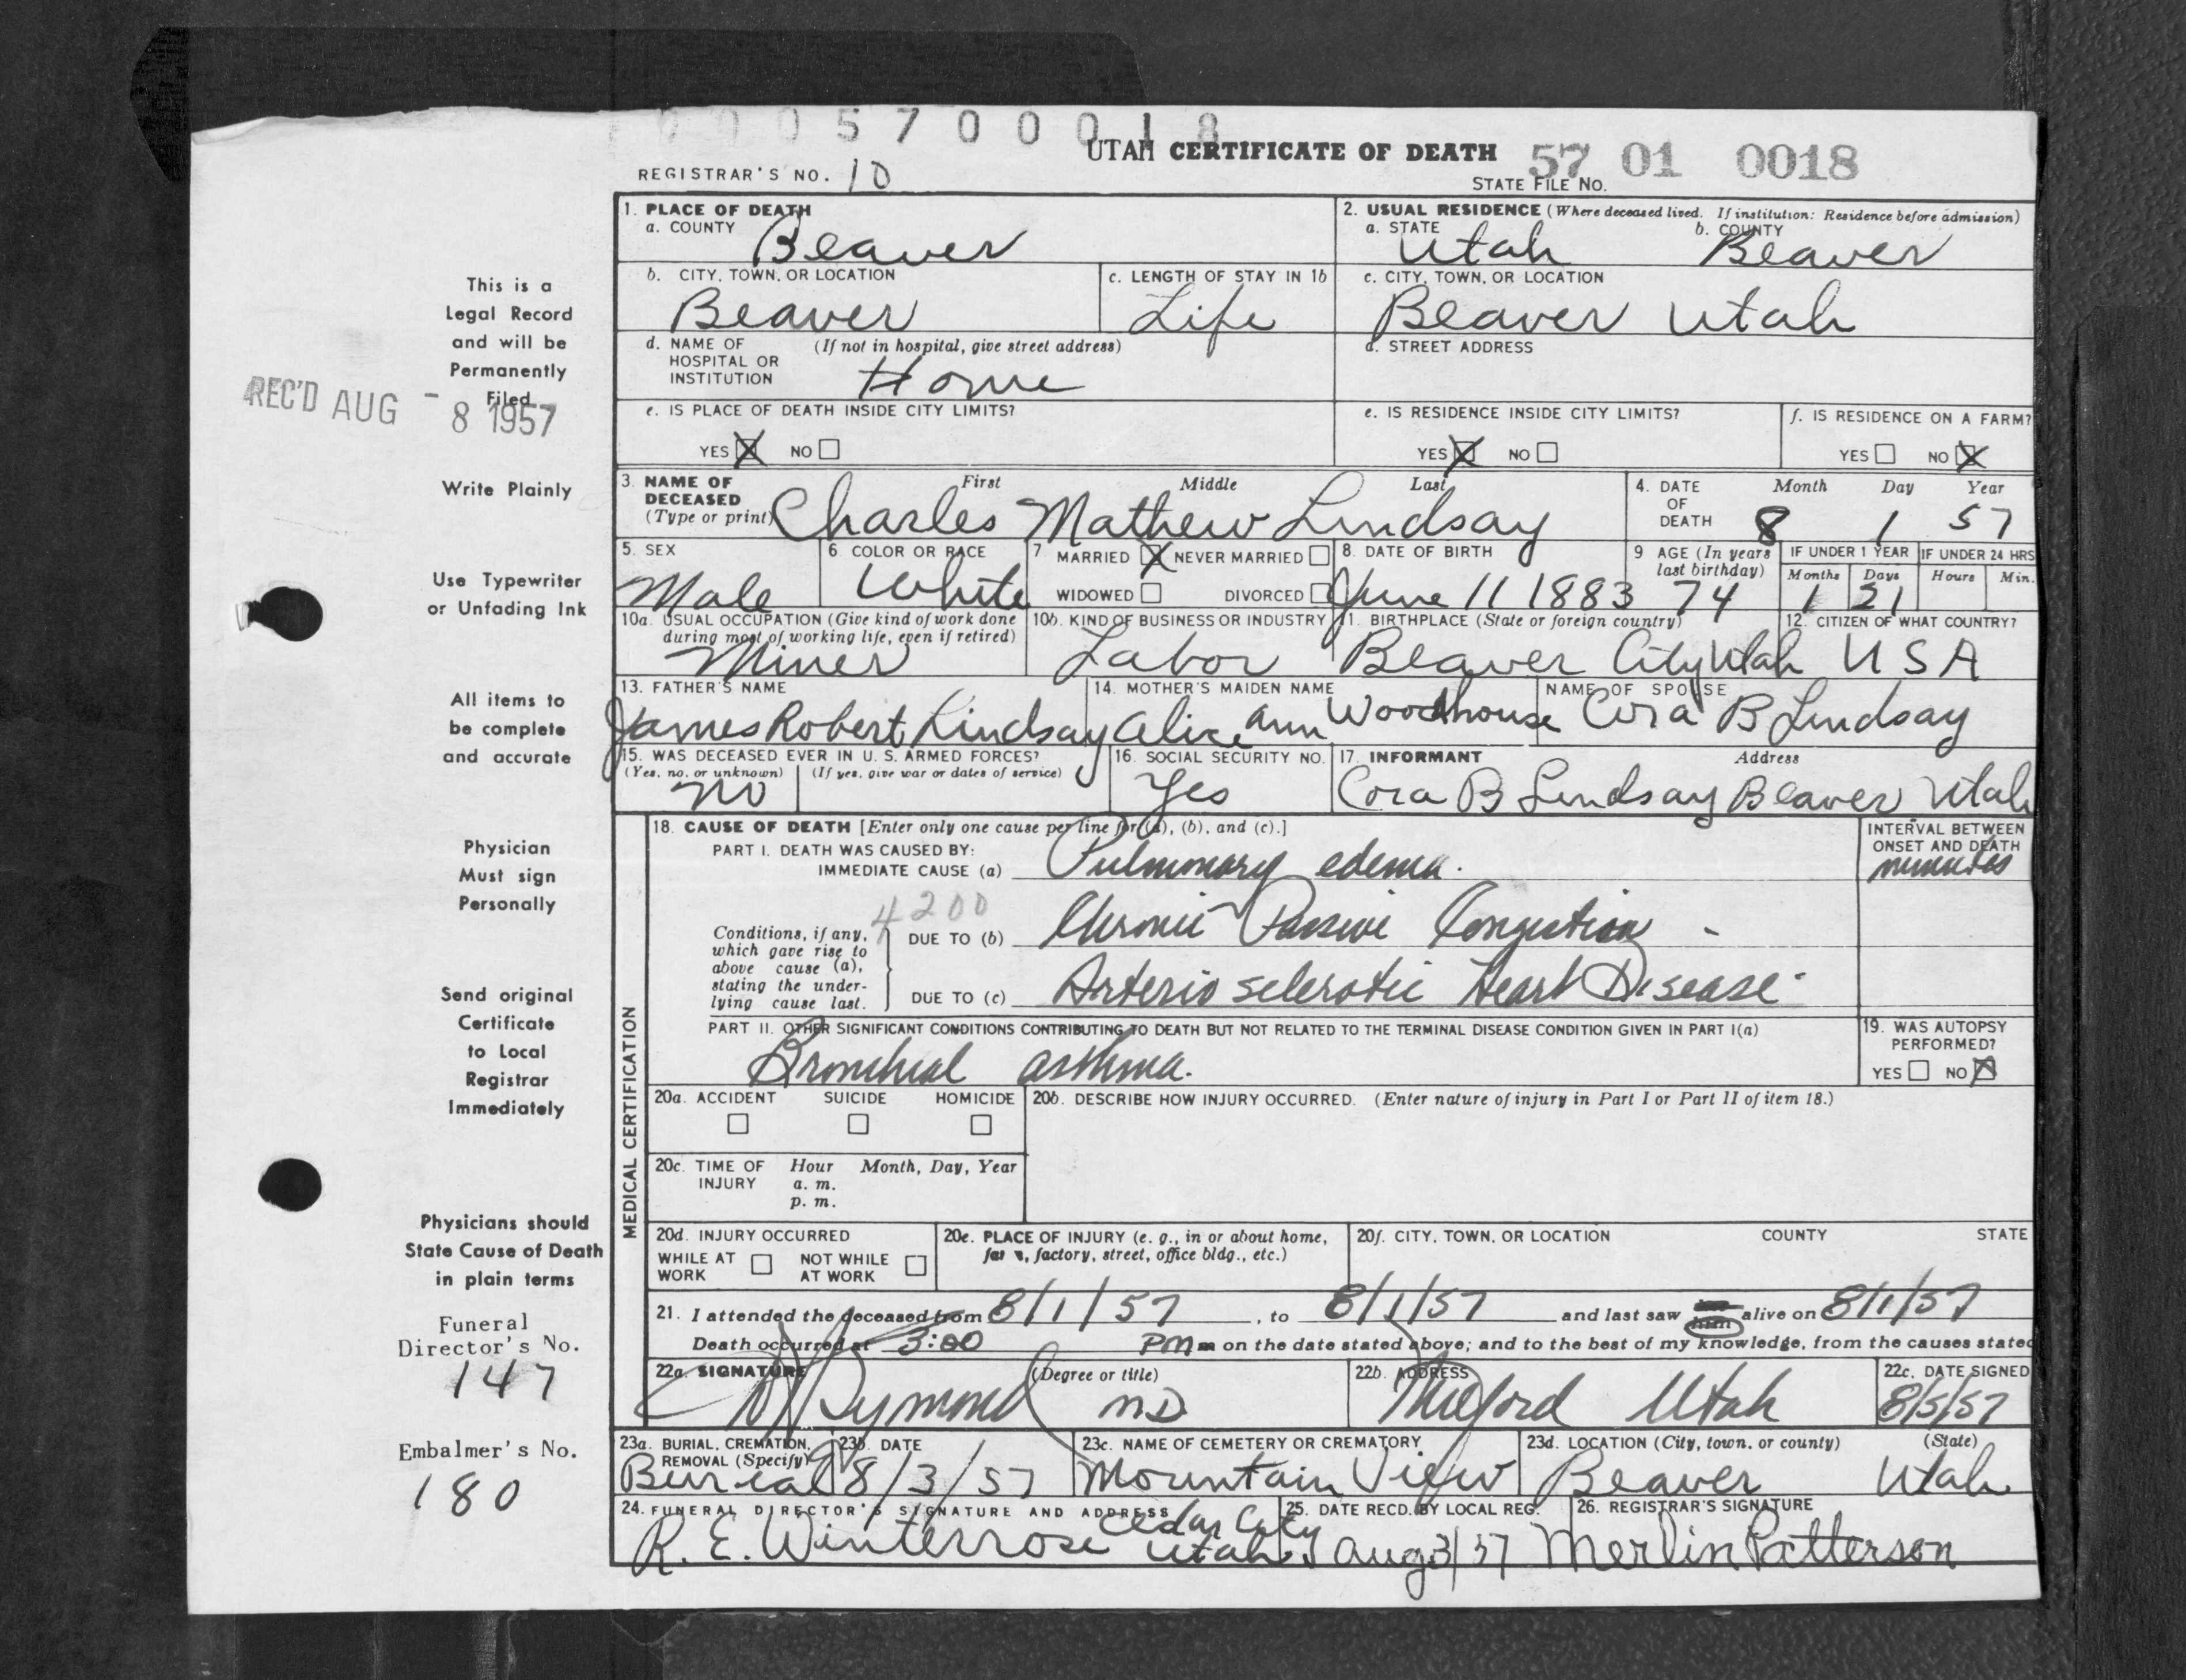 0 0 0 5 7 0 0 0 1 8
UTAH CERTIFICATE OF DEATH 57 01 0018
REGISTRAR'S NO. 10
STATE FILE NO.
1. PLACE OF DEATH
a. COUNTY Beaver
2. USUAL RESIDENCE (Where deceased lived. If institution: Residence before admission)
a. STATE Utah b. COUNTY Beaver
b. CITY, TOWN, OR LOCATION Beaver
c. LENGTH OF STAY IN 1b Life
c. CITY, TOWN, OR LOCATION Beaver Utah
d. NAME OF HOSPITAL OR INSTITUTION (If not in hospital, give street address) Home
d. STREET ADDRESS
e. IS PLACE OF DEATH INSIDE CITY LIMITS?
YES X NO
e. IS RESIDENCE INSIDE CITY LIMITS?
YES X NO
f. IS RESIDENCE ON A FARM?
YES NO X
3. NAME OF DECEASED (Type or print) First Middle Last
Charles Mathew Lindsay
4. DATE OF DEATH Month Day Year
8 1 57
5. SEX Male
6 COLOR OR RACE White
7 MARRIED X NEVER MARRIED
WIDOWED DIVORCED
8. DATE OF BIRTH June 11 1883
9 AGE (In years last birthday) 74
IF UNDER 1 YEAR Months 1 Days 21
IF UNDER 24 HRS Hours Min.
10a. USUAL OCCUPATION (Give kind of work done during most of working life, even if retired) Miner
10b. KIND OF BUSINESS OR INDUSTRY Labor
11. BIRTHPLACE (State or foreign country) Beaver City Utah
12. CITIZEN OF WHAT COUNTRY? USA
13. FATHER'S NAME James Robert Lindsay
14. MOTHER'S MAIDEN NAME Alice Ann Woodhouse
NAME OF SPOUSE Cora B Lindsay
15. WAS DECEASED EVER IN U. S. ARMED FORCES?
(Yes, no, or unknown) (If yes, give war or dates of service)
No
16. SOCIAL SECURITY NO. Yes
17. INFORMANT Address
Cora B Lindsay Beaver Utah
MEDICAL CERTIFICATION
18. CAUSE OF DEATH [Enter only one cause per line for (a), (b), and (c).]
PART I. DEATH WAS CAUSED BY:
IMMEDIATE CAUSE (a) Pulmonary edema.
INTERVAL BETWEEN ONSET AND DEATH
minutes
4200
Conditions, if any, which gave rise to above cause (a), stating the underlying cause last.
DUE TO (b) Chronic Passive Congestion -
DUE TO (c) Arterio sclerotic Heart Disease
PART II. OTHER SIGNIFICANT CONDITIONS CONTRIBUTING TO DEATH BUT NOT RELATED TO THE TERMINAL DISEASE CONDITION GIVEN IN PART I(a)
Bronchial asthma.
19. WAS AUTOPSY PERFORMED?
YES NO X
20a. ACCIDENT SUICIDE HOMICIDE
20b. DESCRIBE HOW INJURY OCCURRED. (Enter nature of injury in Part I or Part II of item 18.)
20c. TIME OF INJURY Hour Month, Day, Year
a. m.
p. m.
20d. INJURY OCCURRED
WHILE AT WORK NOT WHILE AT WORK
20e. PLACE OF INJURY (e. g., in or about home, farm, factory, street, office bldg., etc.)
20f. CITY, TOWN, OR LOCATION COUNTY STATE
21. I attended the deceased from 8/1/57, to 8/1/57 and last saw him alive on 8/1/57
Death occurred at 3:00 PM m on the date stated above; and to the best of my knowledge, from the causes stated
22a. SIGNATURE (Degree or title)
Symond MD
22b. ADDRESS Milford Utah
22c. DATE SIGNED 8/5/57
23a. BURIAL, CREMATION, REMOVAL (Specify) Burial
23b. DATE 8/3/57
23c. NAME OF CEMETERY OR CREMATORY Mountain View
23d. LOCATION (City, town, or county) (State)
Beaver Utah
24. FUNERAL DIRECTOR'S SIGNATURE AND ADDRESS
R. E. Winterrose Cedar City Utah
25. DATE RECD. BY LOCAL REG. Aug 3/57
26. REGISTRAR'S SIGNATURE Merlin Patterson
This is a
Legal Record
and will be
Permanently
Filed
REC'D AUG - 8 1957
Write Plainly
Use Typewriter
or Unfading Ink
All items to
be complete
and accurate
Physician
Must sign
Personally
Send original
Certificate
to Local
Registrar
Immediately
Physicians should
State Cause of Death
in plain terms
Funeral
Director's No.
147
Embalmer's No.
180